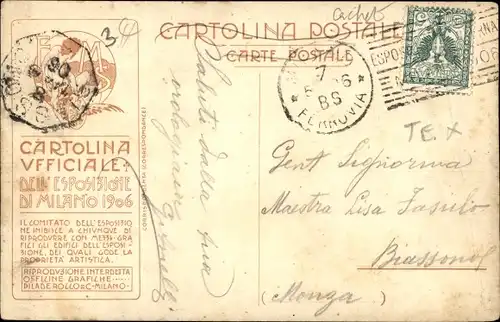 34
Cachet
CARTOLINA POSTALE
CARTE POSTALE
7
06
BS
* FERROVIA *
ESPOS
TE. X
E M
CARTOLINA
VFFICIALE
DELL'ESPOSIZIONE
DI MILANO 1906
IL COMITATO DELL'ESPOSIZIO
NE INIBISCE A CHIUNQUE DI
RIPRODURRE CON MEZZI GRA
FICI GLI EDIFICI DELL'ESPOSI-
ZIONE, DEI QUALI GODE LA
PROPRIETÀ ARTISTICA.
RIPRODVSIONE INTERDETTA
OFFICINE GRAFICHE
PILADE ROCCO & C - MILANO
Saluti dalla sua
Gent Signorina
Maestra Lisa
Biassono
(Monza)